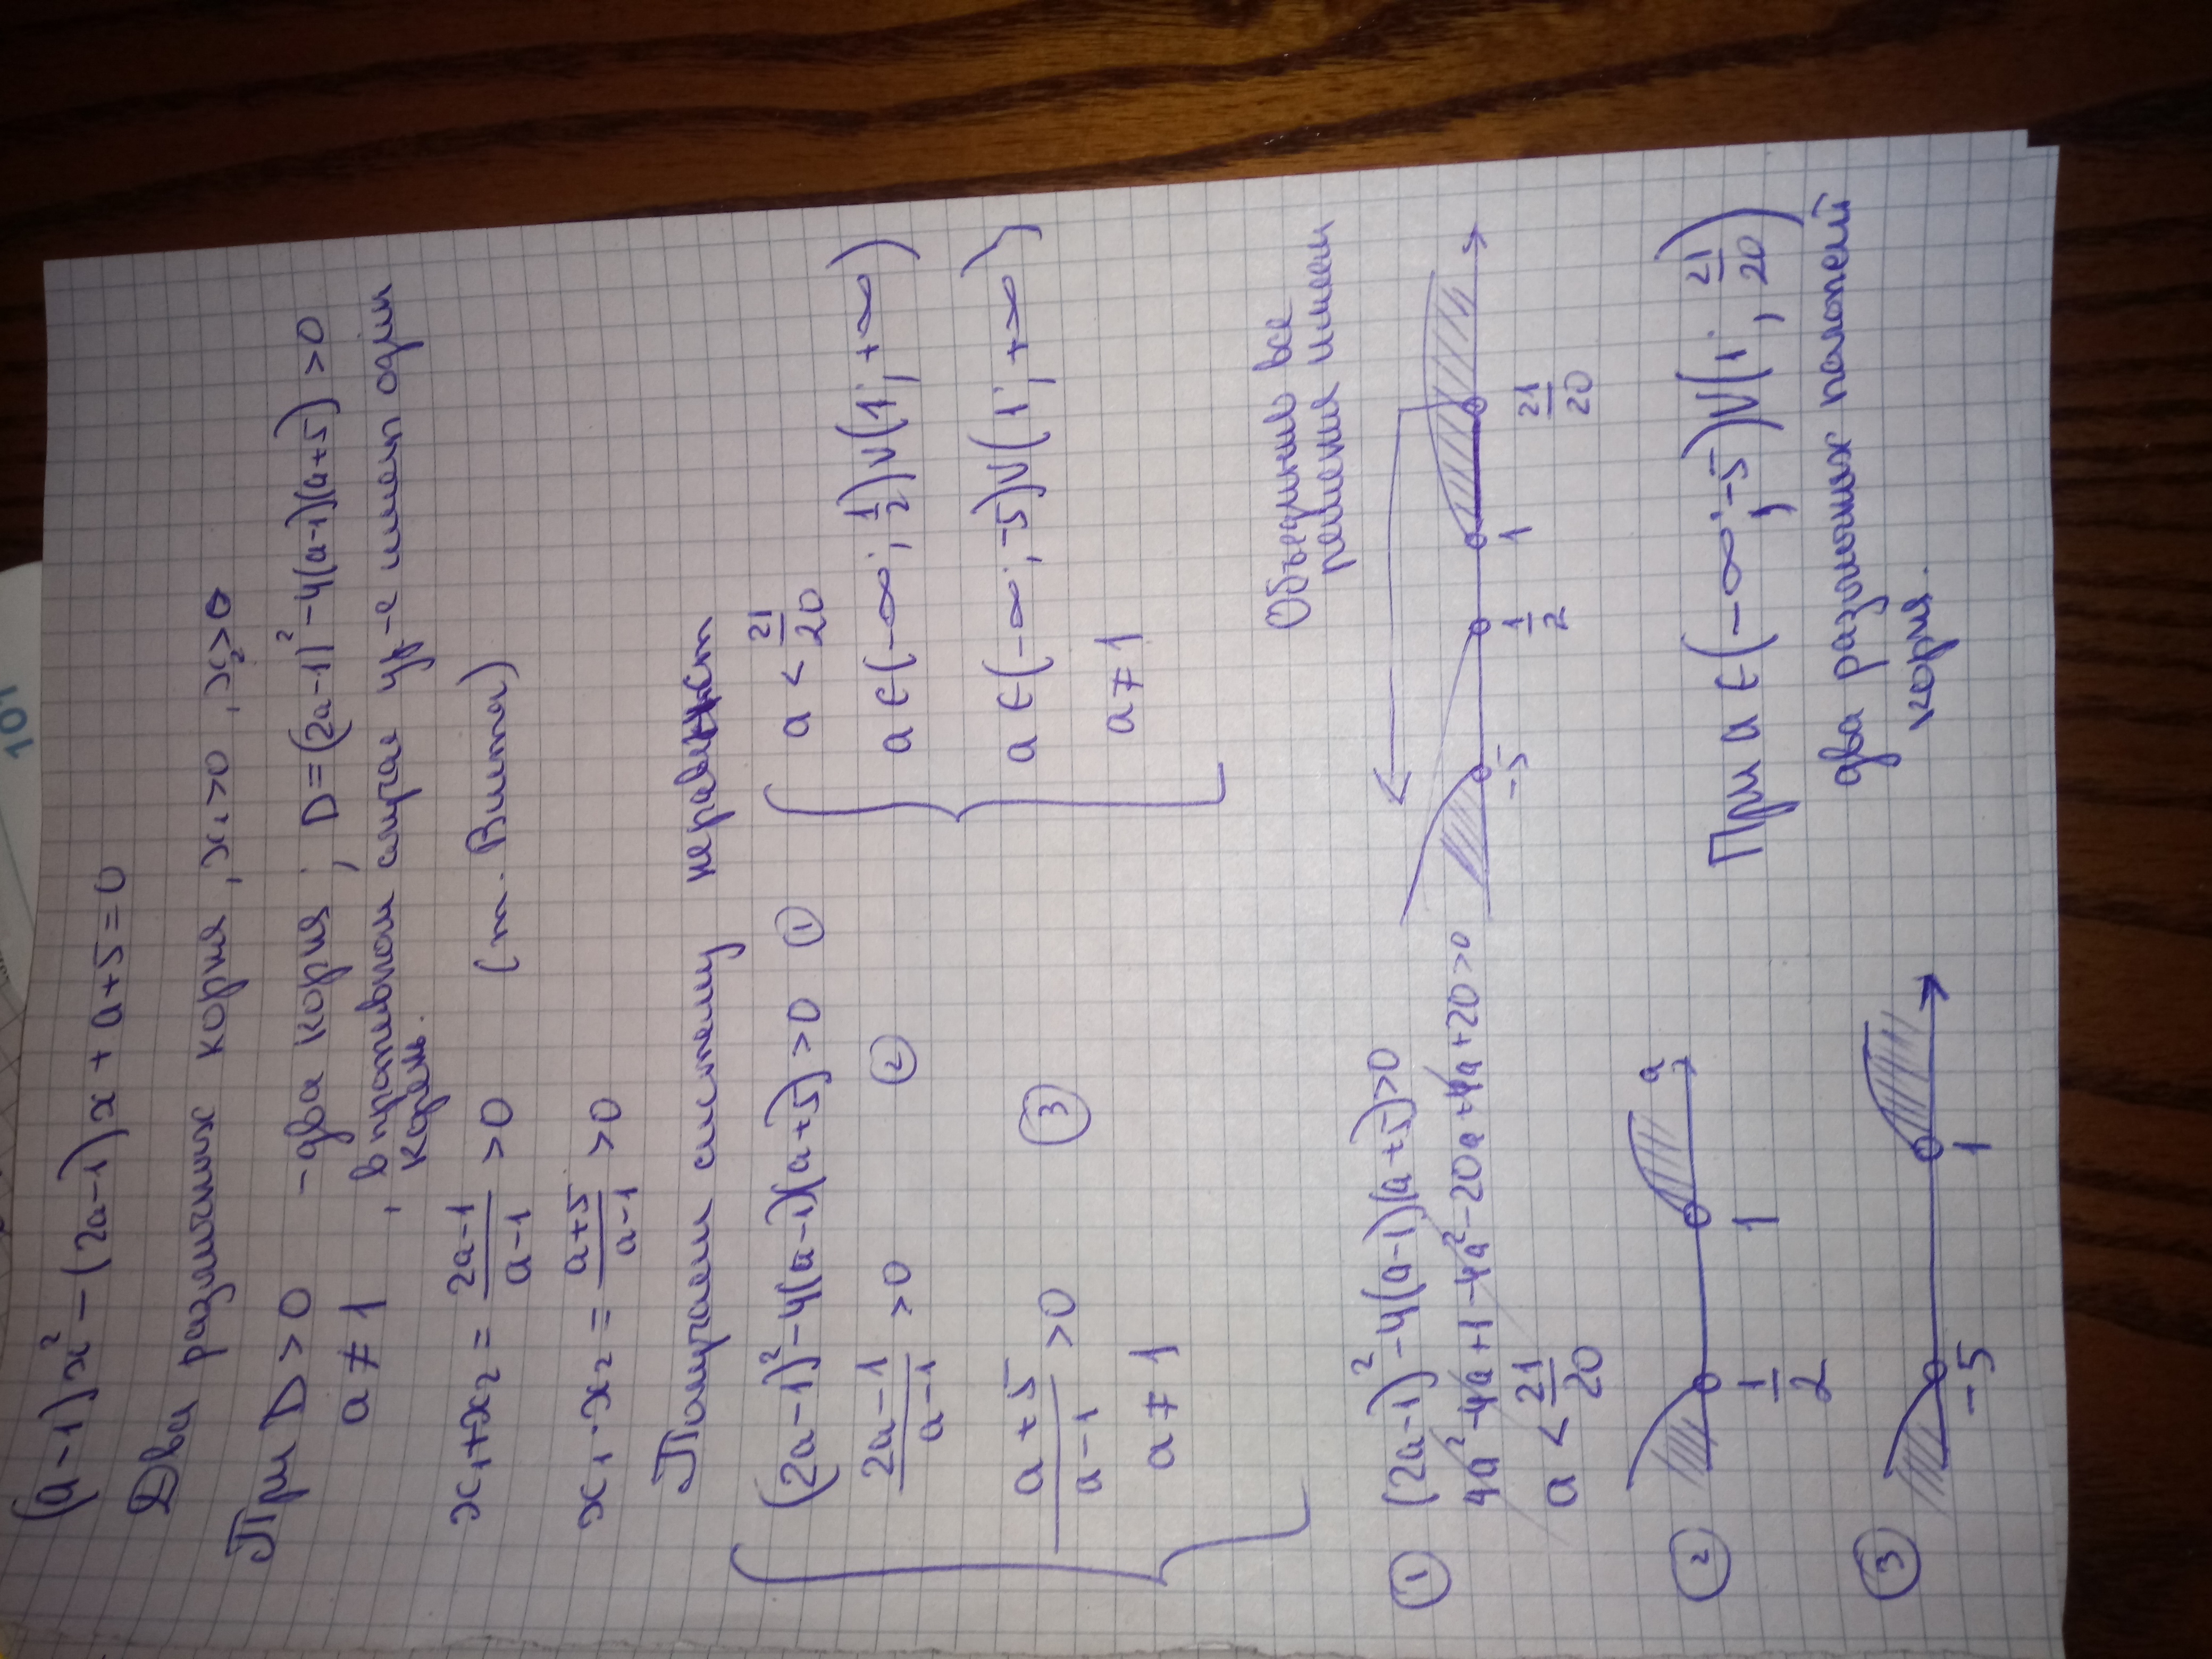 101
(a-1)x² - (2a-1)x + a+5=0
Два различных корня, x₁>0, x₂>0
При D>0 - два корня ; D=(2a-1)²-4(a-1)(a+5)>0
a≠1 , в противном случае ур-е имеет один
корень.
x₁+x₂ = (2a-1)/(a-1) >0 (т. Виета)
x₁·x₂ = (a+5)/(a-1) >0
Получаем систему неравенст
(2a-1)²-4(a-1)(a+5)>0 ①
(2a-1)/(a-1) >0 ②
(a+5)/(a-1) >0 ③
a≠1
a < 21/20
a∈(-∞; 1/2)∪(1; +∞)
a∈(-∞; -5)∪(1; +∞)
a≠1
① (2a-1)²-4(a-1)(a+5)>0
4a²-4a+1-4a²-20a+4a+20>0
a < 21/20
② 1/2 1 a
③ -5 1
Объединив все
решения имеем
-5 1/2 1 21/20
При a∈(-∞;-5)∪(1; 21/20)
два различных положит
корня.